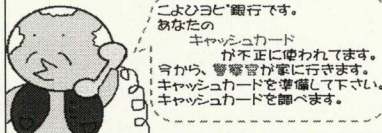 こよひヨビ銀行です。
あなたの
キャッシュカード
が不正に使われてます。
今から、警察官が家に行きます。
キャッシュカードを準備して下さい。
キャッシュカードを調べます。